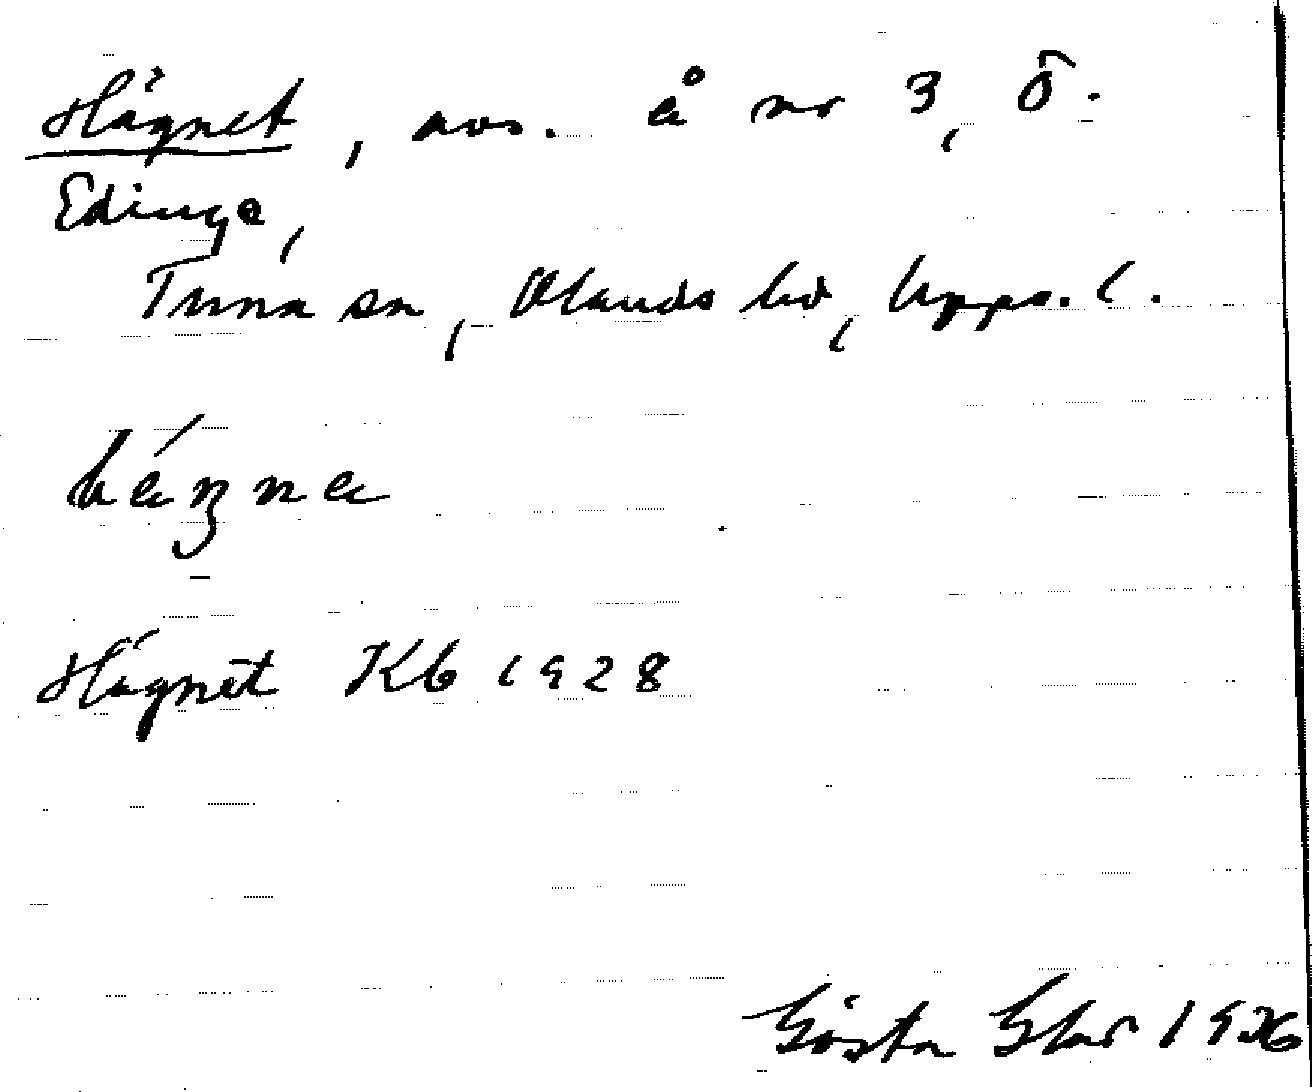 Hägnet, avs. å nr 3, Ö.
Edinge,
Tuna sn, Olands hd, Upps. l.
Hägnet Kb 1928
Gösta 1936